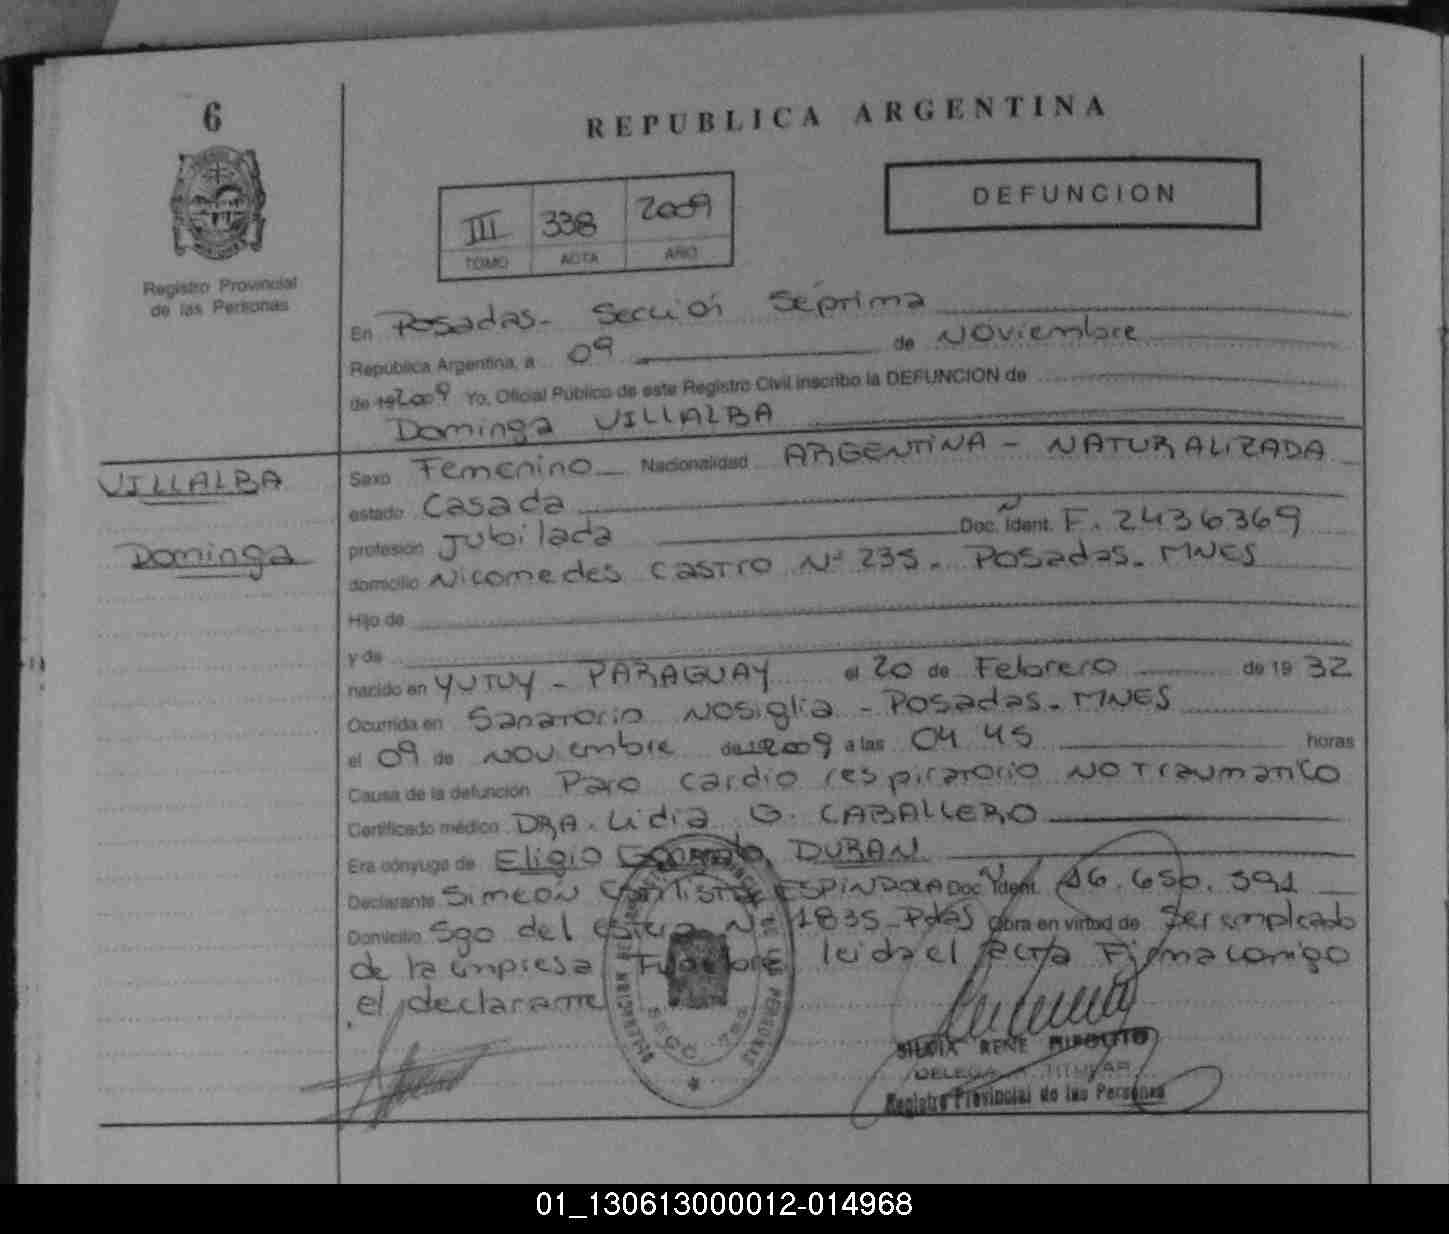 6
REPUBLICA ARGENTINA
DEFUNCION
III 338 2009
TOMO ACTA AÑO
Registro Provincial
de las Personas
En Posadas - Sección Séptima
República Argentina, a 09 de Noviembre
de 19 2009 Yo, Oficial Público de este Registro Civil inscribo la DEFUNCION de
Dominga VILLALBA
VILLALBA
Dominga
Sexo Femenino Nacionalidad ARGENTINA - NATURALIZADA
estado Casada
profesión Jubilada Doc. Ident. F. 2436369
domicilio Nicomedes CASTRO Nº 235. Posadas. MNES
Hijo de
y de
nacido en YUTUY - PARAGUAY el 20 de Febrero de 19 32
Ocurrida en Sanatorio Nosiglia - Posadas. MNES
el 09 de Noviembre de 2009 a las 04 45 horas
Causa de la defunción Paro cardio respiratorio NO Traumatico
Certificado médico DRA. Lidia G. CABALLERO
Era cónyuge de Eligio DURAN
Declarante Simeón ESPINDOLA Doc. Ident. 16.650.391
Domicilio Sgo del estero Nº 1835 - Pdas Obra en virtud de Ser empleado
de la empresa leida el acta Firma conmigo
el declarante
DE LAS PERSONAS
SILVIA RENE HIPOLITO
DELEGADA TITULAR
Registro Provincial de las Personas
01_130613000012-014968